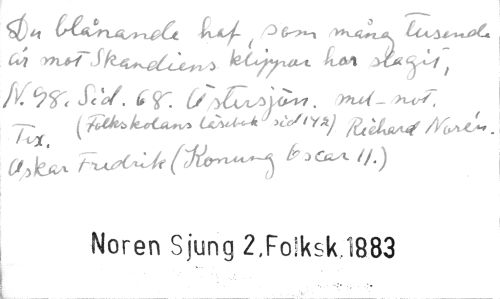 Du blånande haf, som mång tusende
år mot Skandiens klippor har slagit,
N. 98. Sid. 68. Östersjön. mel-not.
(Folkskolans läsebok sid 142) Richard Norén.
Tvx.
Oskar Fredrik (Konung Oscar II.)
Noren Sjung 2, Folksk. 1883